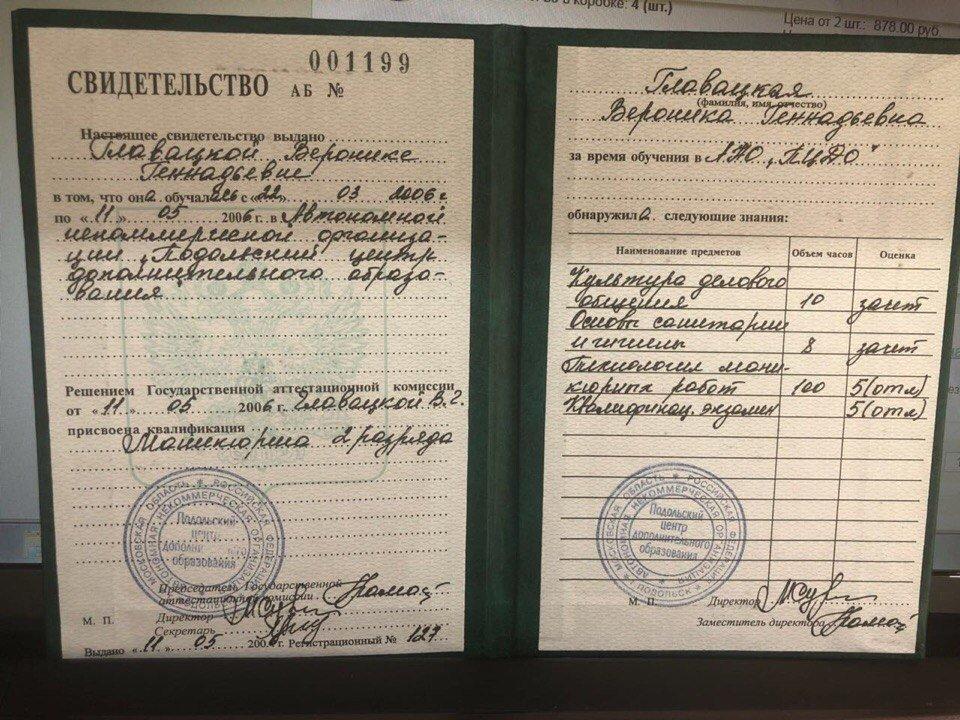 в коробке: 4 (шт.)
Цена от 2 шт.: 878.00 руб
001199
СВИДЕТЕЛЬСТВО АБ №
Настоящее свидетельство выдано
Главацкой Веронике
Геннадьевне
в том, что она обучалась с «22» 03 2006 г.
по «11» 05 2006 г. в Автономной
некоммерческой организа-
ции „Подольский центр
дополнительного образо-
вания"
Решением Государственной аттестационной комиссии
от «11» 05 2006 г. Главацкой В.Г.
присвоена квалификация
Маникюрша 2 разряда
МОСКОВСКАЯ ОБЛАСТЬ * РОССИЙСКАЯ ФЕДЕРАЦИЯ
АВТОНОМНАЯ НЕКОММЕРЧЕСКАЯ ОРГАНИЗАЦИЯ
Подольский
центр
образования
Председатель Государственной
аттестационной комиссии
М. П. Директор
Секретарь
Выдано «11» 05 2006 г. Регистрационный № 127
Главацкая
(фамилия, имя, отчество)
Вероника Геннадьевна
за время обучения в АНО „ПЦДО"
обнаружила следующие знания:
Наименование предметов Объем часов Оценка
Культура делового
общения 10 зачет
Основы санитарии
и гигиены 8 зачет
Технология мани-
кюрных работ 100 5(отл)
Квалификац. экзамен 5(отл)
МОСКОВСКАЯ ОБЛАСТЬ * РОССИЙСКАЯ ФЕДЕРАЦИЯ
АВТОНОМНАЯ НЕКОММЕРЧЕСКАЯ ОРГАНИЗАЦИЯ
Подольский
центр
дополнительного
образования
ПОДОЛЬСК
М. П. Директор
Заместитель директора